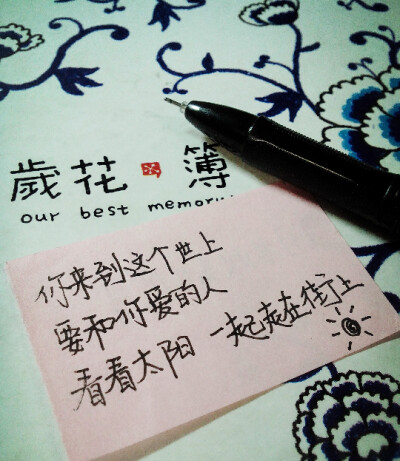 歲花 簿
our best memor
你来到这个世上
要和你爱的人
看看太阳 一起走在街上